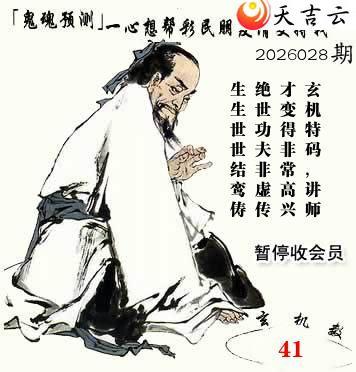 「鬼魂预测」一心想帮彩民朋友
天吉云
2026028期
玄机特码，讲师
才变得非常高兴
绝世功夫非虚传
生生世世结鸾俦
暂停收会员
玄机数
41